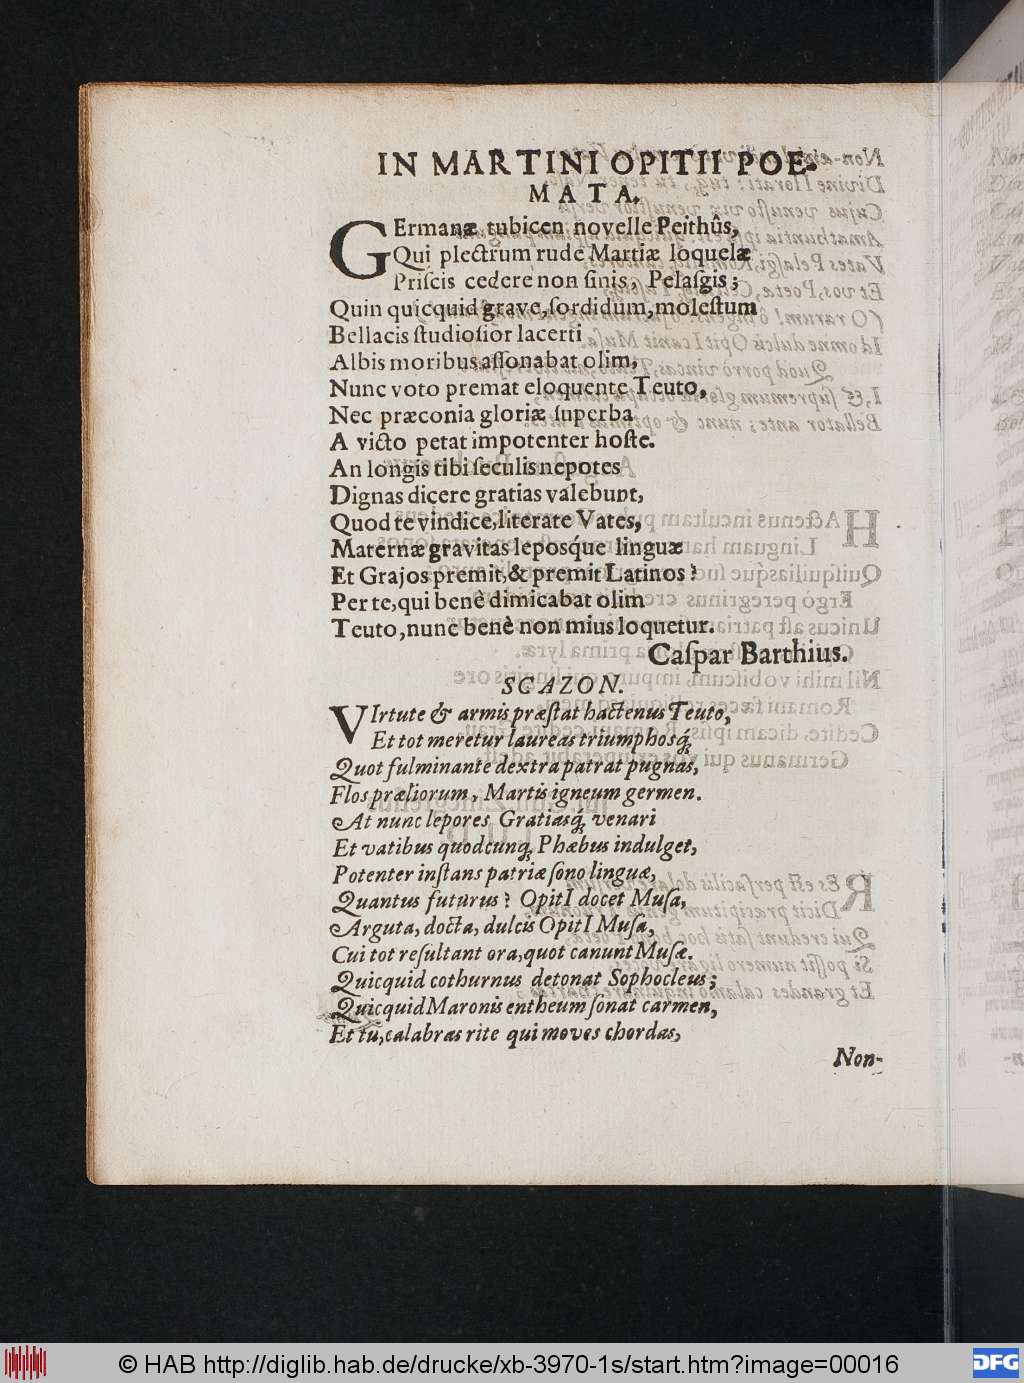 IN MARTINI OPITII POE-
MATA.
GErmanæ tubicen novelle Peithûs,
Qui plectrum rude Martiæ loquelæ
Priſcis cedere non ſinis, Pelaſgis;
Quin quicquid grave, ſordidum, moleſtum
Bellacis ſtudioſior lacerti
Albis moribus aſſonabat olim,
Nunc voto premat eloquente Teuto,
Nec præconia gloriæ ſuperba
A victo petat impotenter hoſte.
An longis tibi ſeculis nepotes
Dignas dicere gratias valebunt,
Quod te vindice, literate Vates,
Maternæ gravitas leposq́ue linguæ
Et Grajos premit, & premit Latinos?
Per te, qui benè dimicabat olim
Teuto, nunc benè non mius loquetur.
Caſpar Barthius.
SCAZON.
VIrtute & armis præſtat hactenus Teuto,
Et tot meretur laureas triumphosq́;
Quot fulminante dextra patrat pugnas,
Flos præliorum, Martis igneum germen.
At nunc lepores Gratiasq́; venari
Et vatibus quodcunq; Phæbus indulget,
Potenter inſtans patriæ ſono linguæ,
Quantus futurus? OpitI docet Muſa,
Arguta, docta, dulcis OpitI Muſa,
Cui tot reſultant ora, quot canunt Muſæ.
Quicquid cothurnus detonat Sophocleus;
Quicquid Maronis entheum ſonat carmen,
Et tu, calabras rite qui moves chordas,
Non-
© HAB http://diglib.hab.de/drucke/xb-3970-1s/start.htm?image=00016
DFG